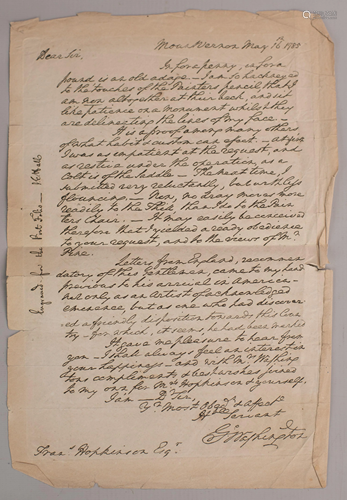 Dear Sir,
Mount Vernon May 16th 1785
In for a penny, in for a
pound is an old adage. I am so hackneyed
to the touches of the Painters pencil, that I
am now altogether at their beck, and sit
like patience on a Monument whilst they
are delineating the lines of my face.
It is a proof among many others
of what habit & custom can effect. At first
I was as impatient at the request, and
as restive under the operation, as a
Colt is of the Saddle. The next time, I
submitted very reluctantly, but with less
flouncing. Now, no dray moves more
readily to the Thill, than I do to the Pain-
ters Chair. It may easily be conceived
therefore that I yielded a ready obedience
to your request, and to the views of Mr
Pine.
Letters from England, recommen
datory of this Gentleman, came to my hand
previous to his arrival in America
not only as an Artist of acknowledged
eminence, but as one who had discover-
ed a friendly disposition towards this Coun
try, for which, it seems, he had been marked
It gave me pleasure to hear from
you. I shall always feel an interest in
your happiness, and with Mrs Washing
tons compliments, & best wishes joined
to my own for Mrs Hopkinson & yourself,
I am, Dr Sir,
Yr Most Obedt & affecte
Hble Servant
Go Washington
Frans Hopkinson Esqr
Engraved for the Port Folio